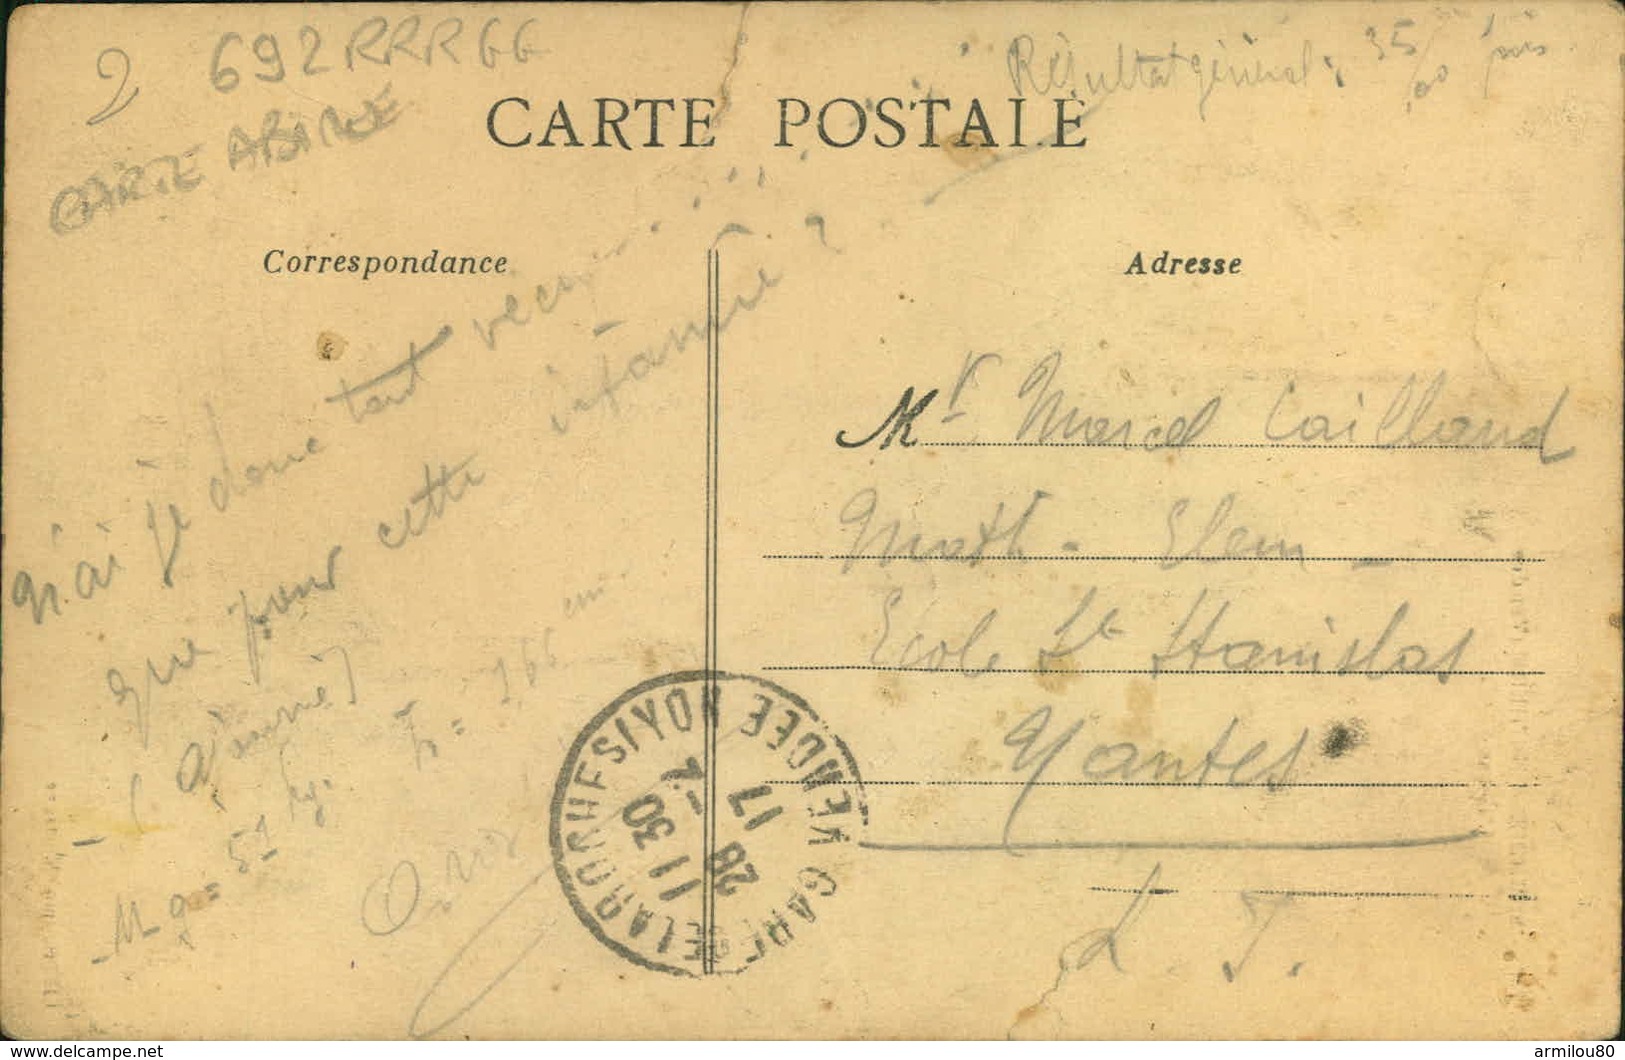 2 692RRRGG
CARTE ABIMEE
Résultat général : 35
CARTE POSTALE
Correspondance
Adresse
N'ai je donc tant vecu
que pour cette infamie ?
h = 166 cm
Mg = 51 kg.
Mr Marcel Caillaud
Math - Elem -
Ecole St Stanislas
Nantes
L. T.
GARE DE LA ROCHE S SIYON VENDEE
11 30
28 -2
17
delcampe.net
armilou80